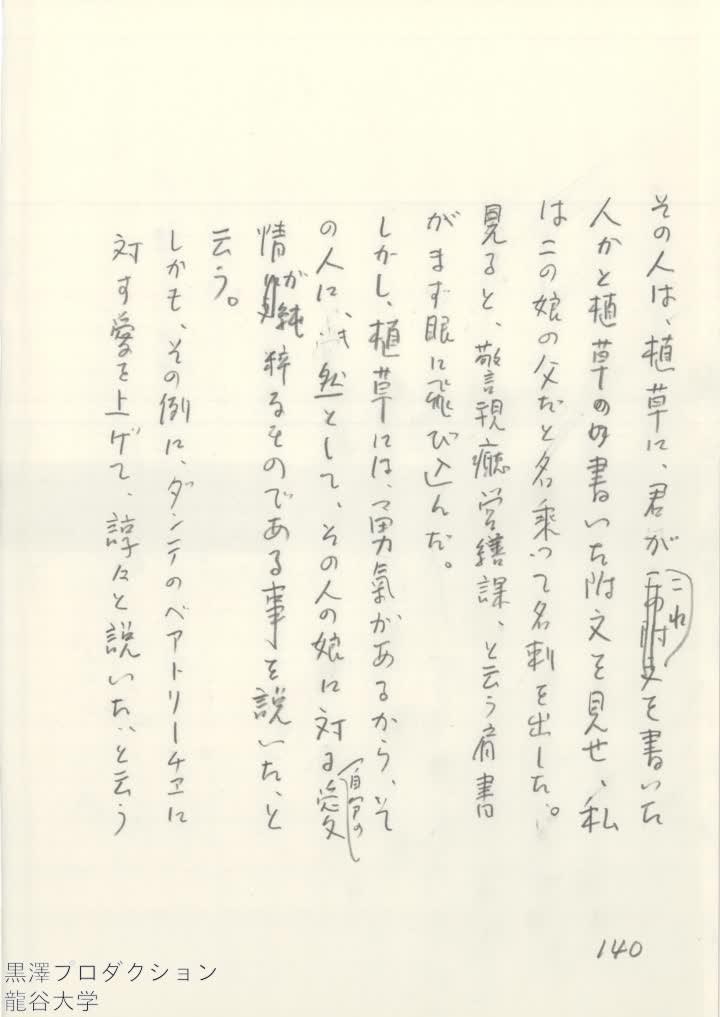 その人は、植草に、君がこれを書いた
人かと植草の書いた附文を見せ、私
はこの娘の父だと名乗って名刺を出した。
見ると、警視廳営繕課、と云う肩書
がまず眼に飛び込んだ。
しかし、植草には、勇氣があるから、そ
の人に、然として、その人の娘に対する自分の愛
情が純粋なものである事を説いた、と
云う。
しかも、その例に、ダンテのベアトリーチェに
対す愛を上げて、諄々と説いた、と云う
140
黒澤プロダクション
龍谷大学